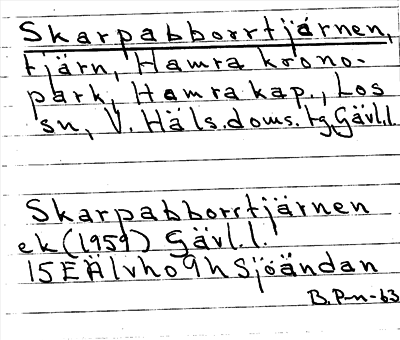 Skarpabborrtjärnen,
tjärn, Hamra krono-
park, Hamra kap., Los
sn, V. Häls. doms. tg, Gävl.l.
Skarpabborrtjärnen
ek (1959) Gävl.l.
15E Älvho 9h Sjöändan
B. P-n-63